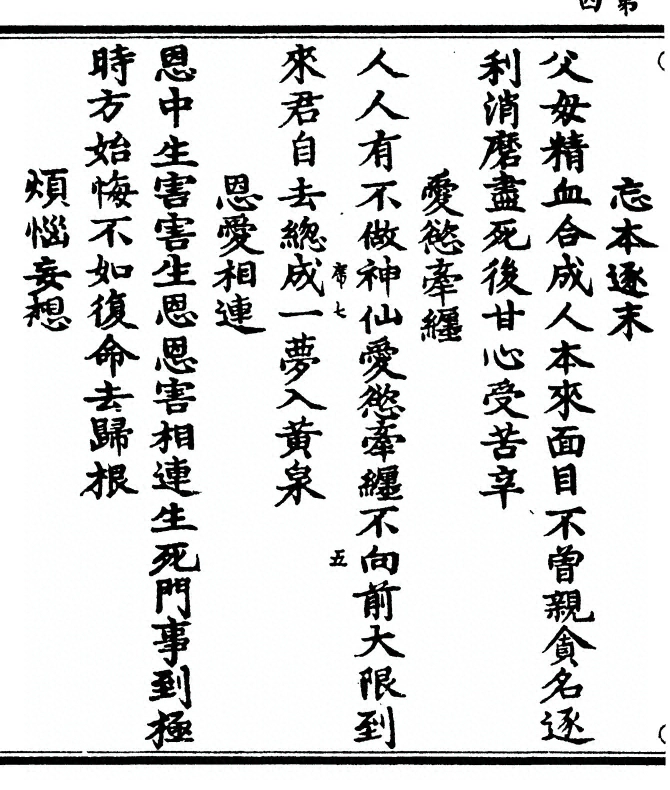 第
四
忘本逐末
父母精血合成人本來面目不曾親貪名逐
利消磨盡死後甘心受苦辛
愛慾牽纏
人人有不做神仙愛慾牽纏不向前大限到
席七
五
來君自去緫成一夢入黃泉
恩愛相連
恩中生害害生恩恩害相連生死門事到極
時方始悔不如復命去歸根
煩惱妄想